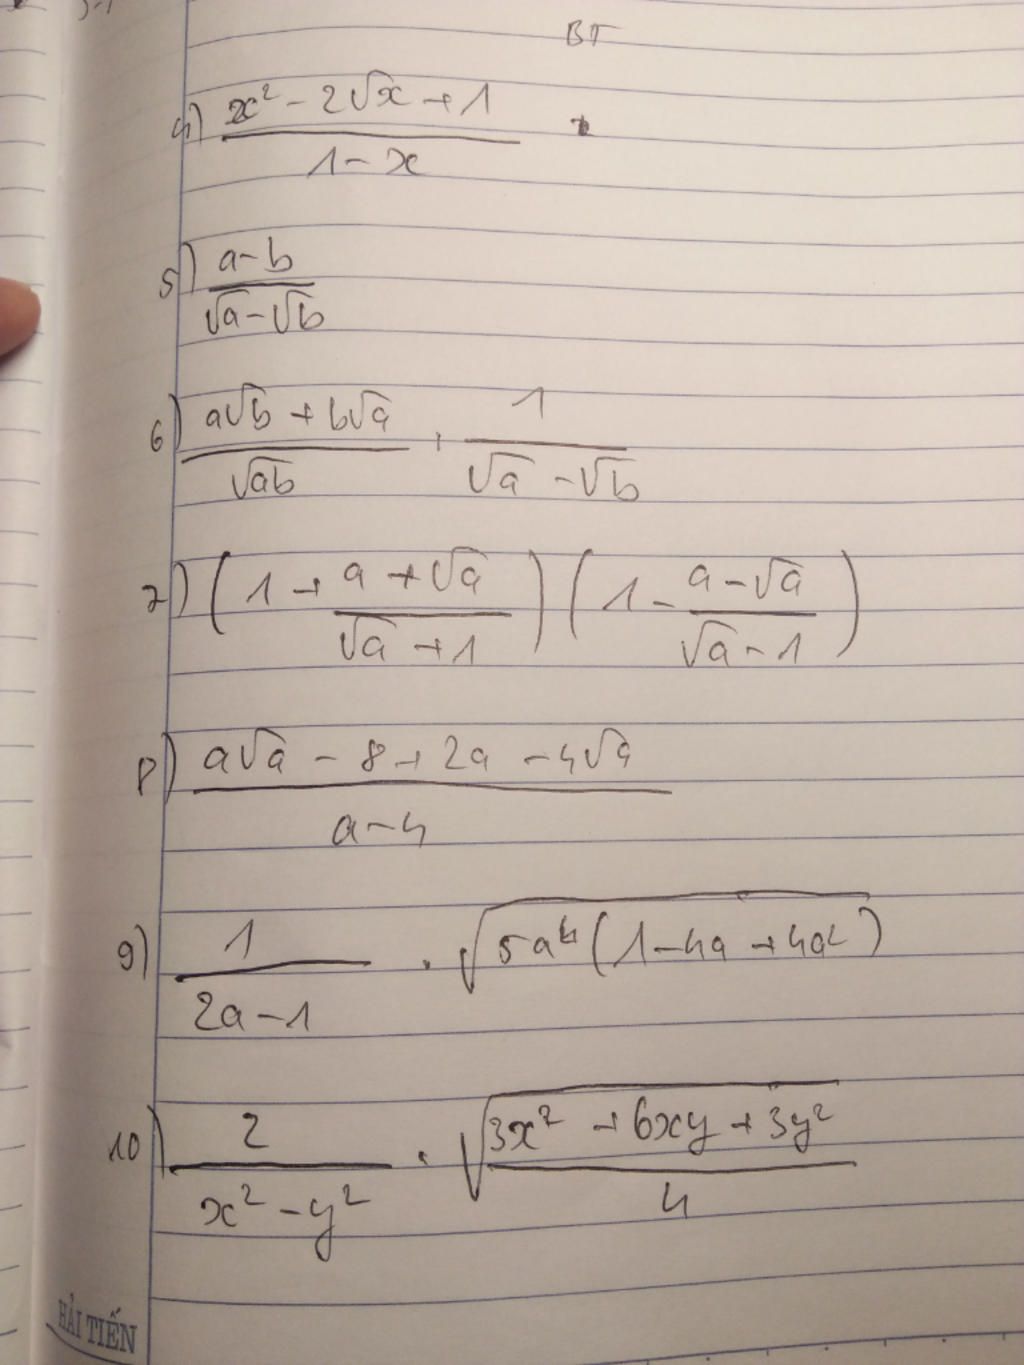 BT
4) \frac{x² - 2√x + 1}{1 - x}
5) \frac{a - b}{√a - √b}
6) \frac{a√b + b√a}{√ab} : \frac{1}{√a - √b}
7) (1 + \frac{a + √a}{√a + 1}) (1 - \frac{a - √a}{√a - 1})
8) \frac{a√a - 8 + 2a - 4√a}{a - 4}
9) \frac{1}{2a - 1} . √{5a⁴(1 - 4a + 4a²)}
10) \frac{2}{x² - y²} . √{\frac{3x² + 6xy + 3y²}{4}}
HẢI TIẾN